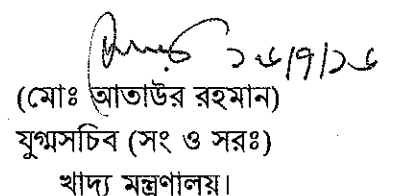 ২৬/৭/১৬
(মোঃ আতাউর রহমান)
যুগ্মসচিব (সং ও সরঃ)
খাদ্য মন্ত্রণালয়।